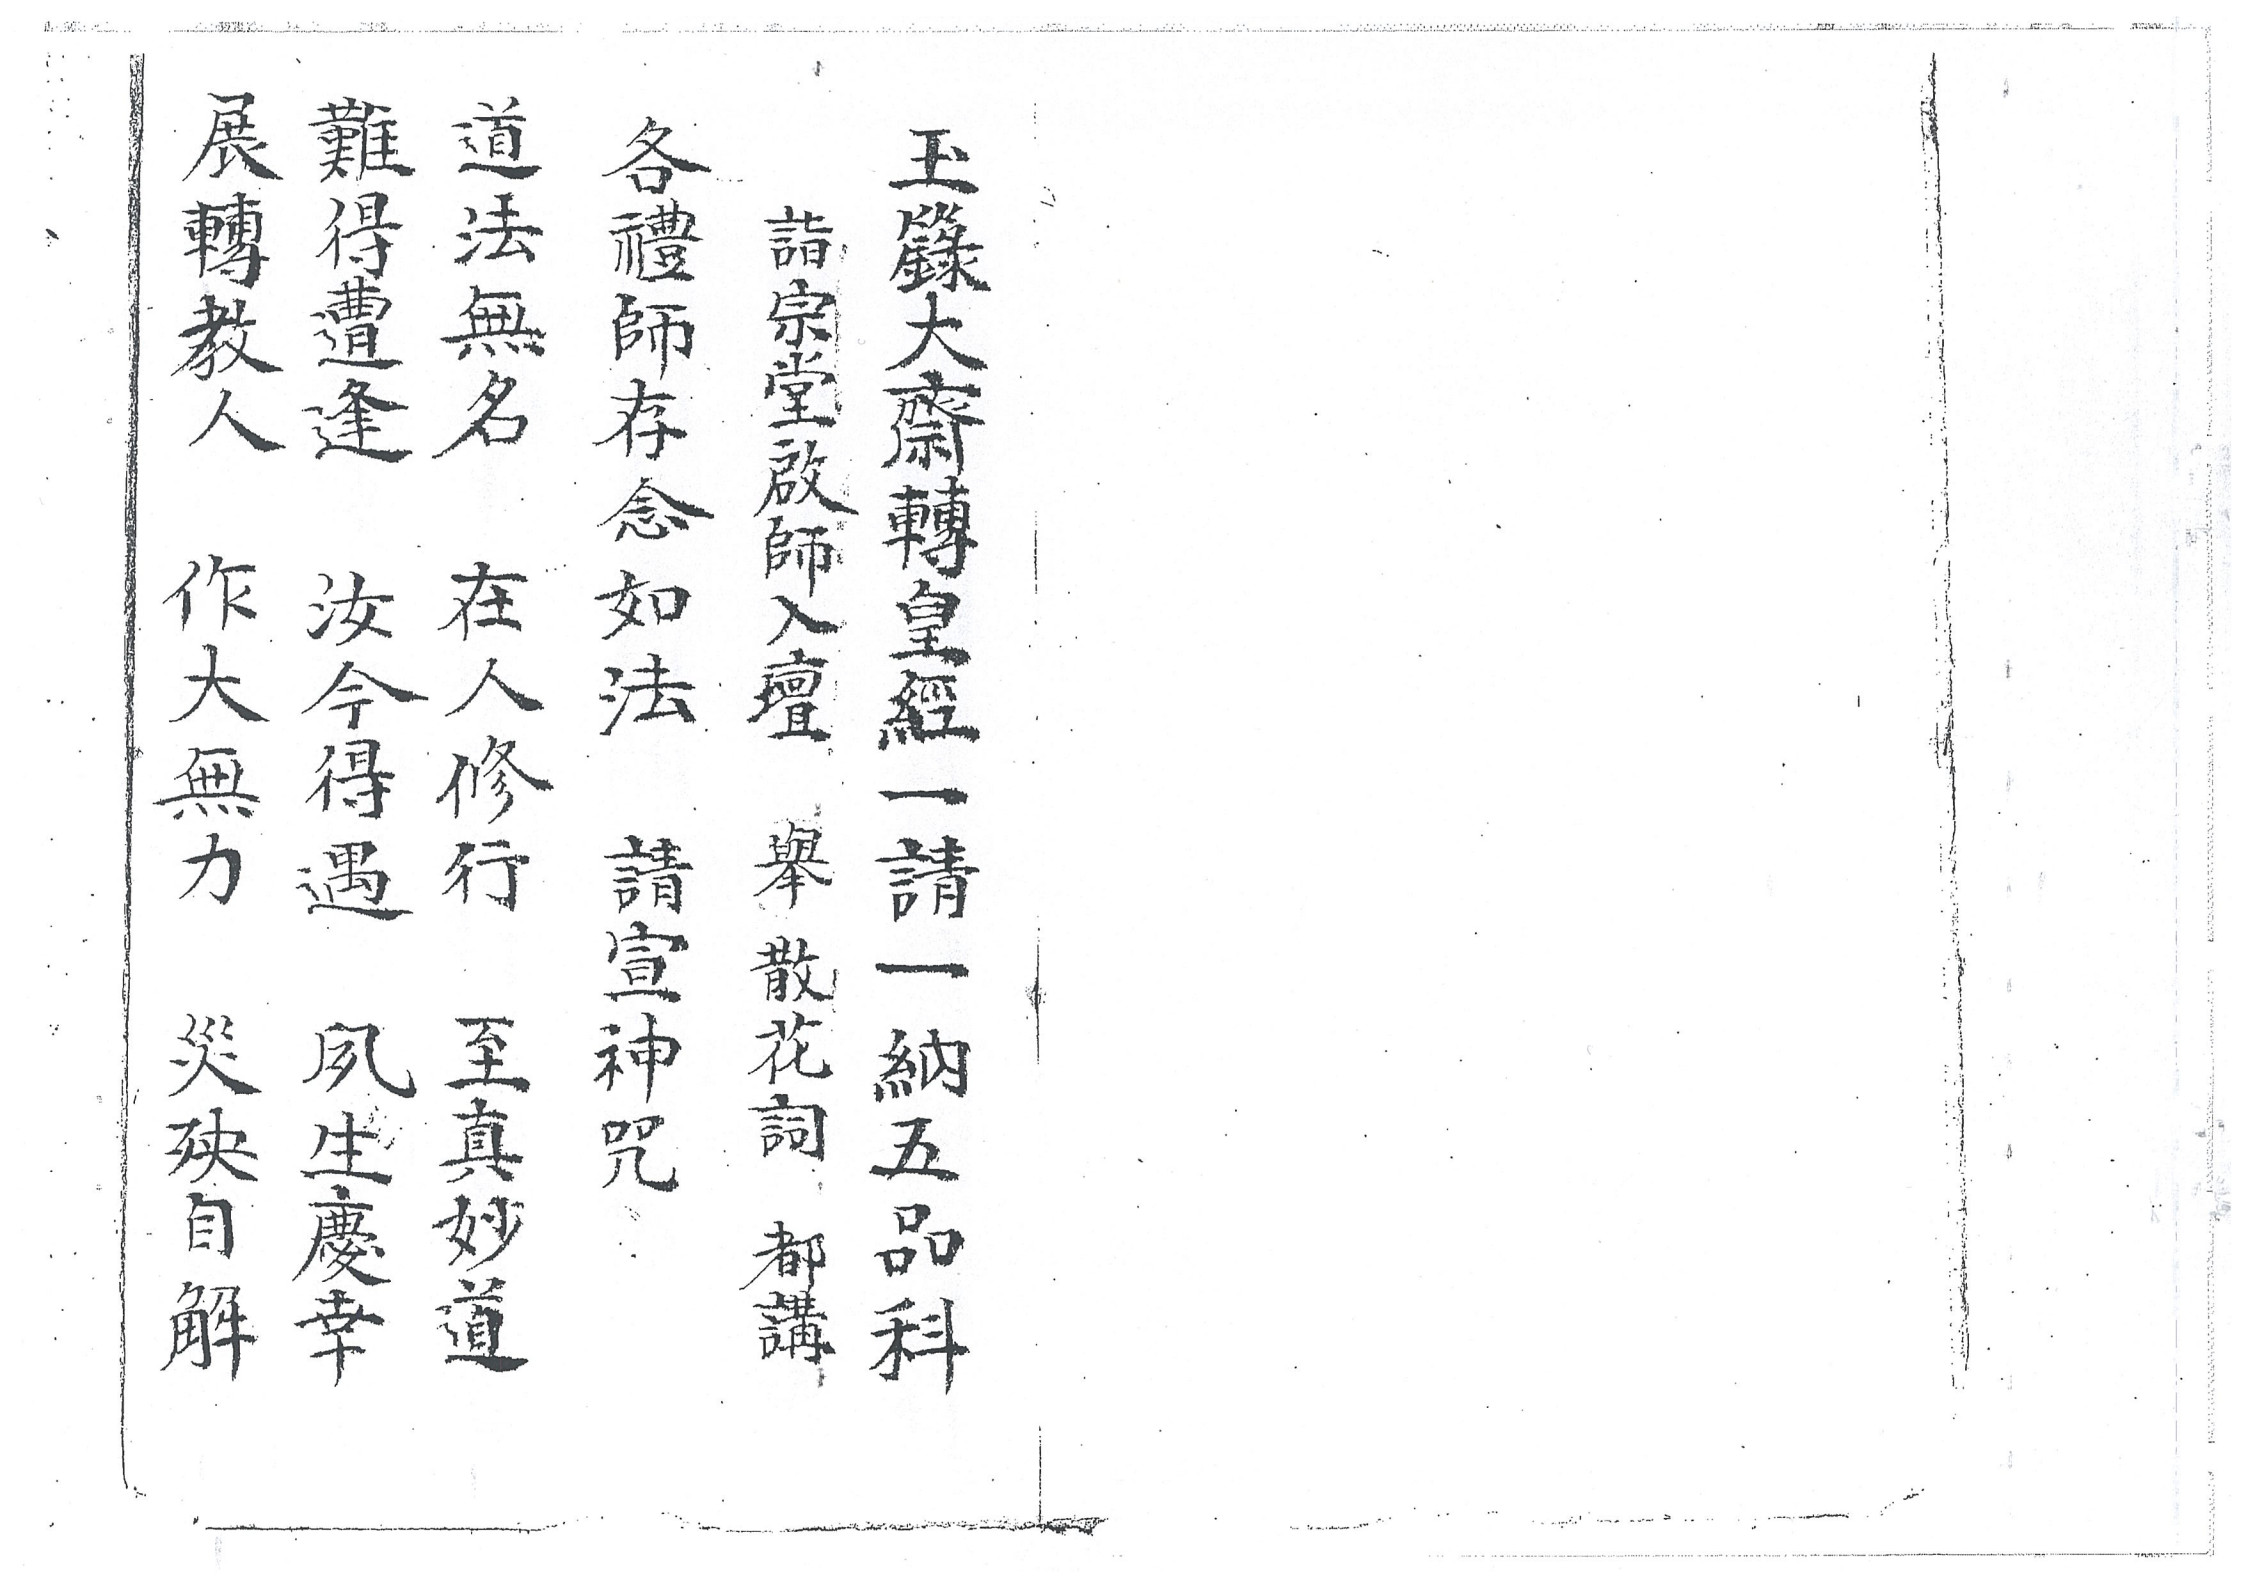 玉籙大齋轉皇經一請一納五品科
詣宗堂啟師入壇　舉散花詞　都講
各禮師存念如法　請宣神咒
道法無名　在人修行　至真妙道
難得遭逢　汝今得遇　夙生慶幸
展轉教人　作大無力　災殃自解